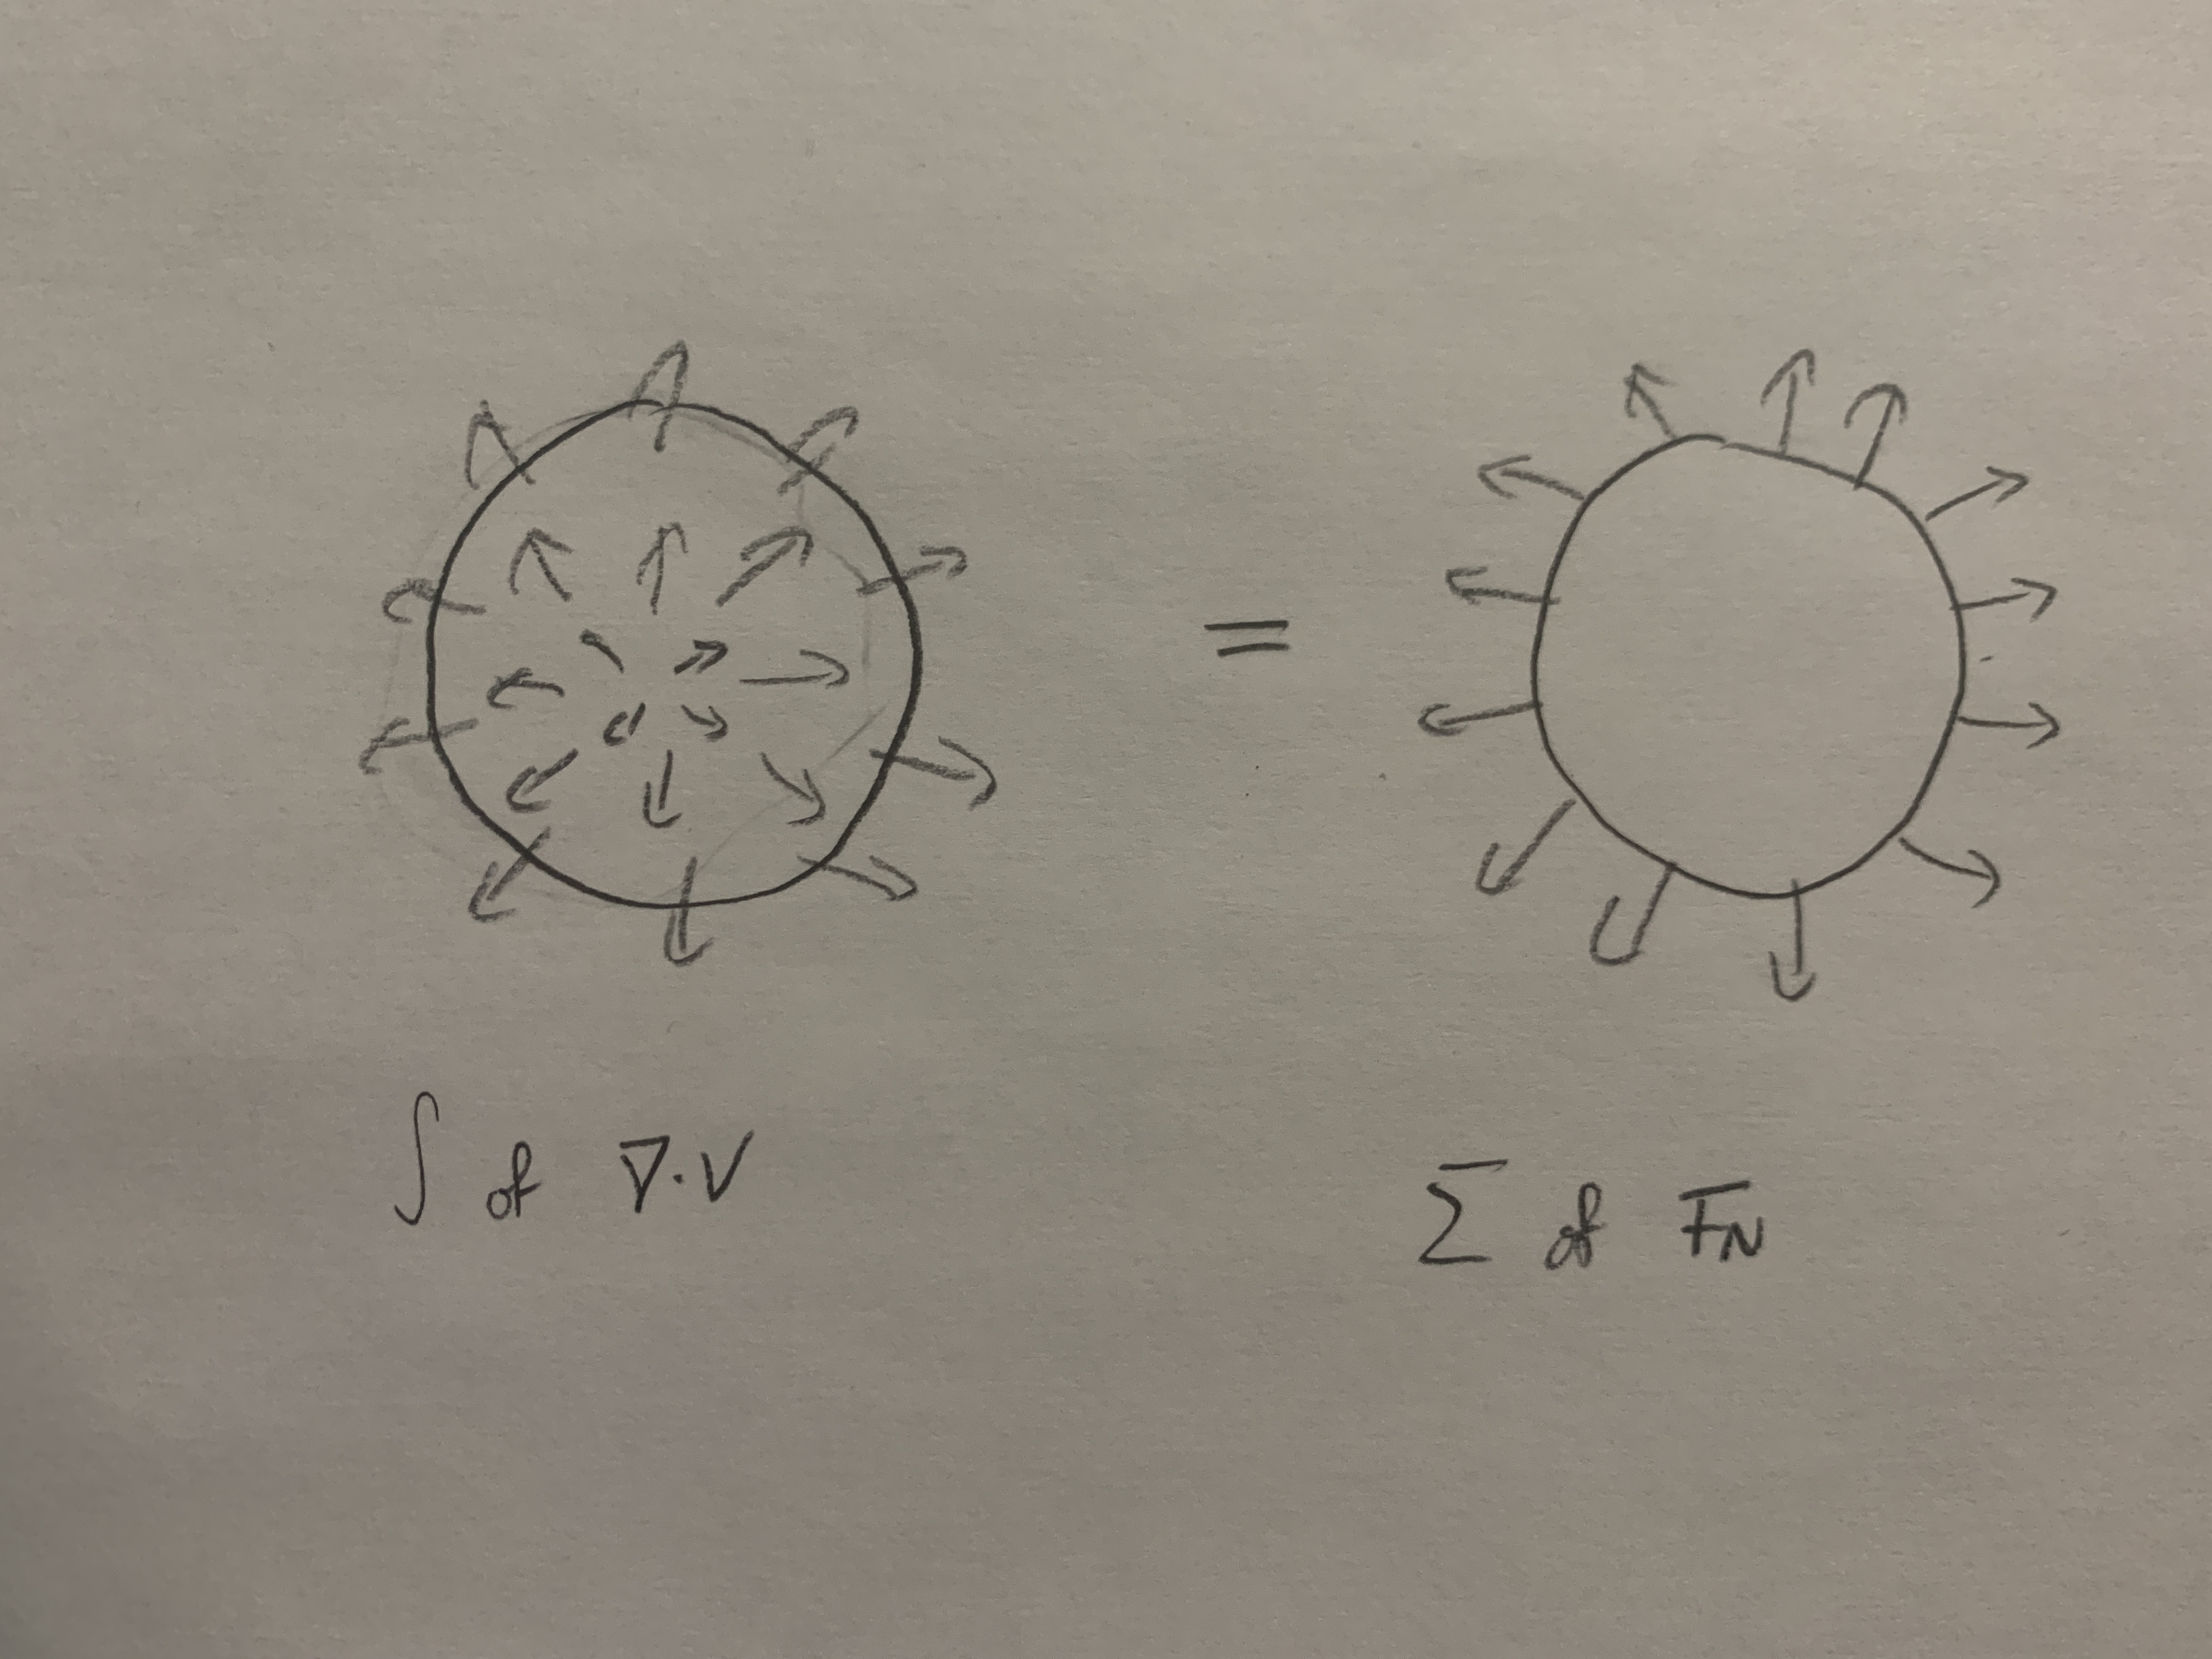 =
∫ of ∇·V
Σ of FN